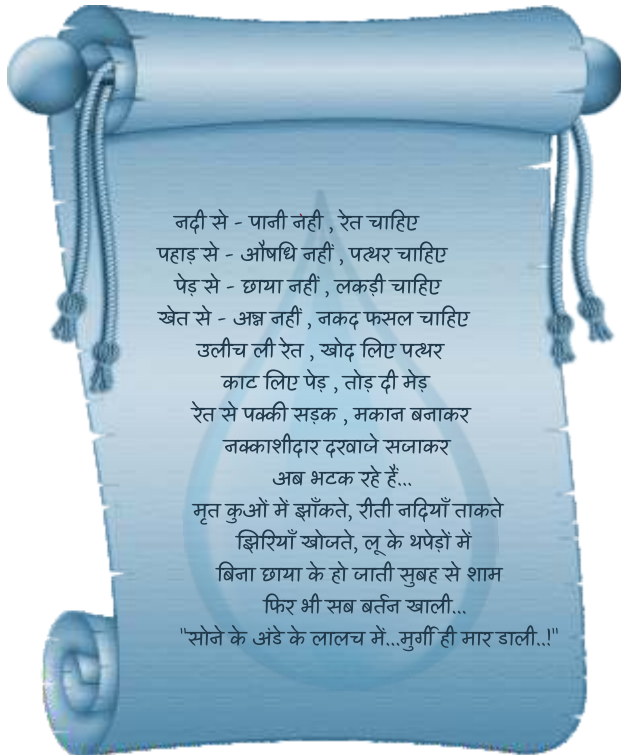 नदी से - पानी नही , रेत चाहिए
पहाड़ से - औषधि नहीं , पत्थर चाहिए
पेड़ से - छाया नहीं , लकड़ी चाहिए
खेत से - अन्न नहीं , नकद फसल चाहिए
उलीच ली रेत , खोद लिए पत्थर
काट लिए पेड़ , तोड़ दी मेड़
रेत से पक्की सड़क , मकान बनाकर
नक्काशीदार दरवाजे सजाकर
अब भटक रहे हैं...
मृत कुओं में झाँकते, रीती नदियाँ ताकते
झिरियाँ खोजते, लू के थपेड़ों में
बिना छाया के हो जाती सुबह से शाम
फिर भी सब बर्तन खाली...
"सोने के अंडे के लालच में...मुर्गी ही मार डाली..!"